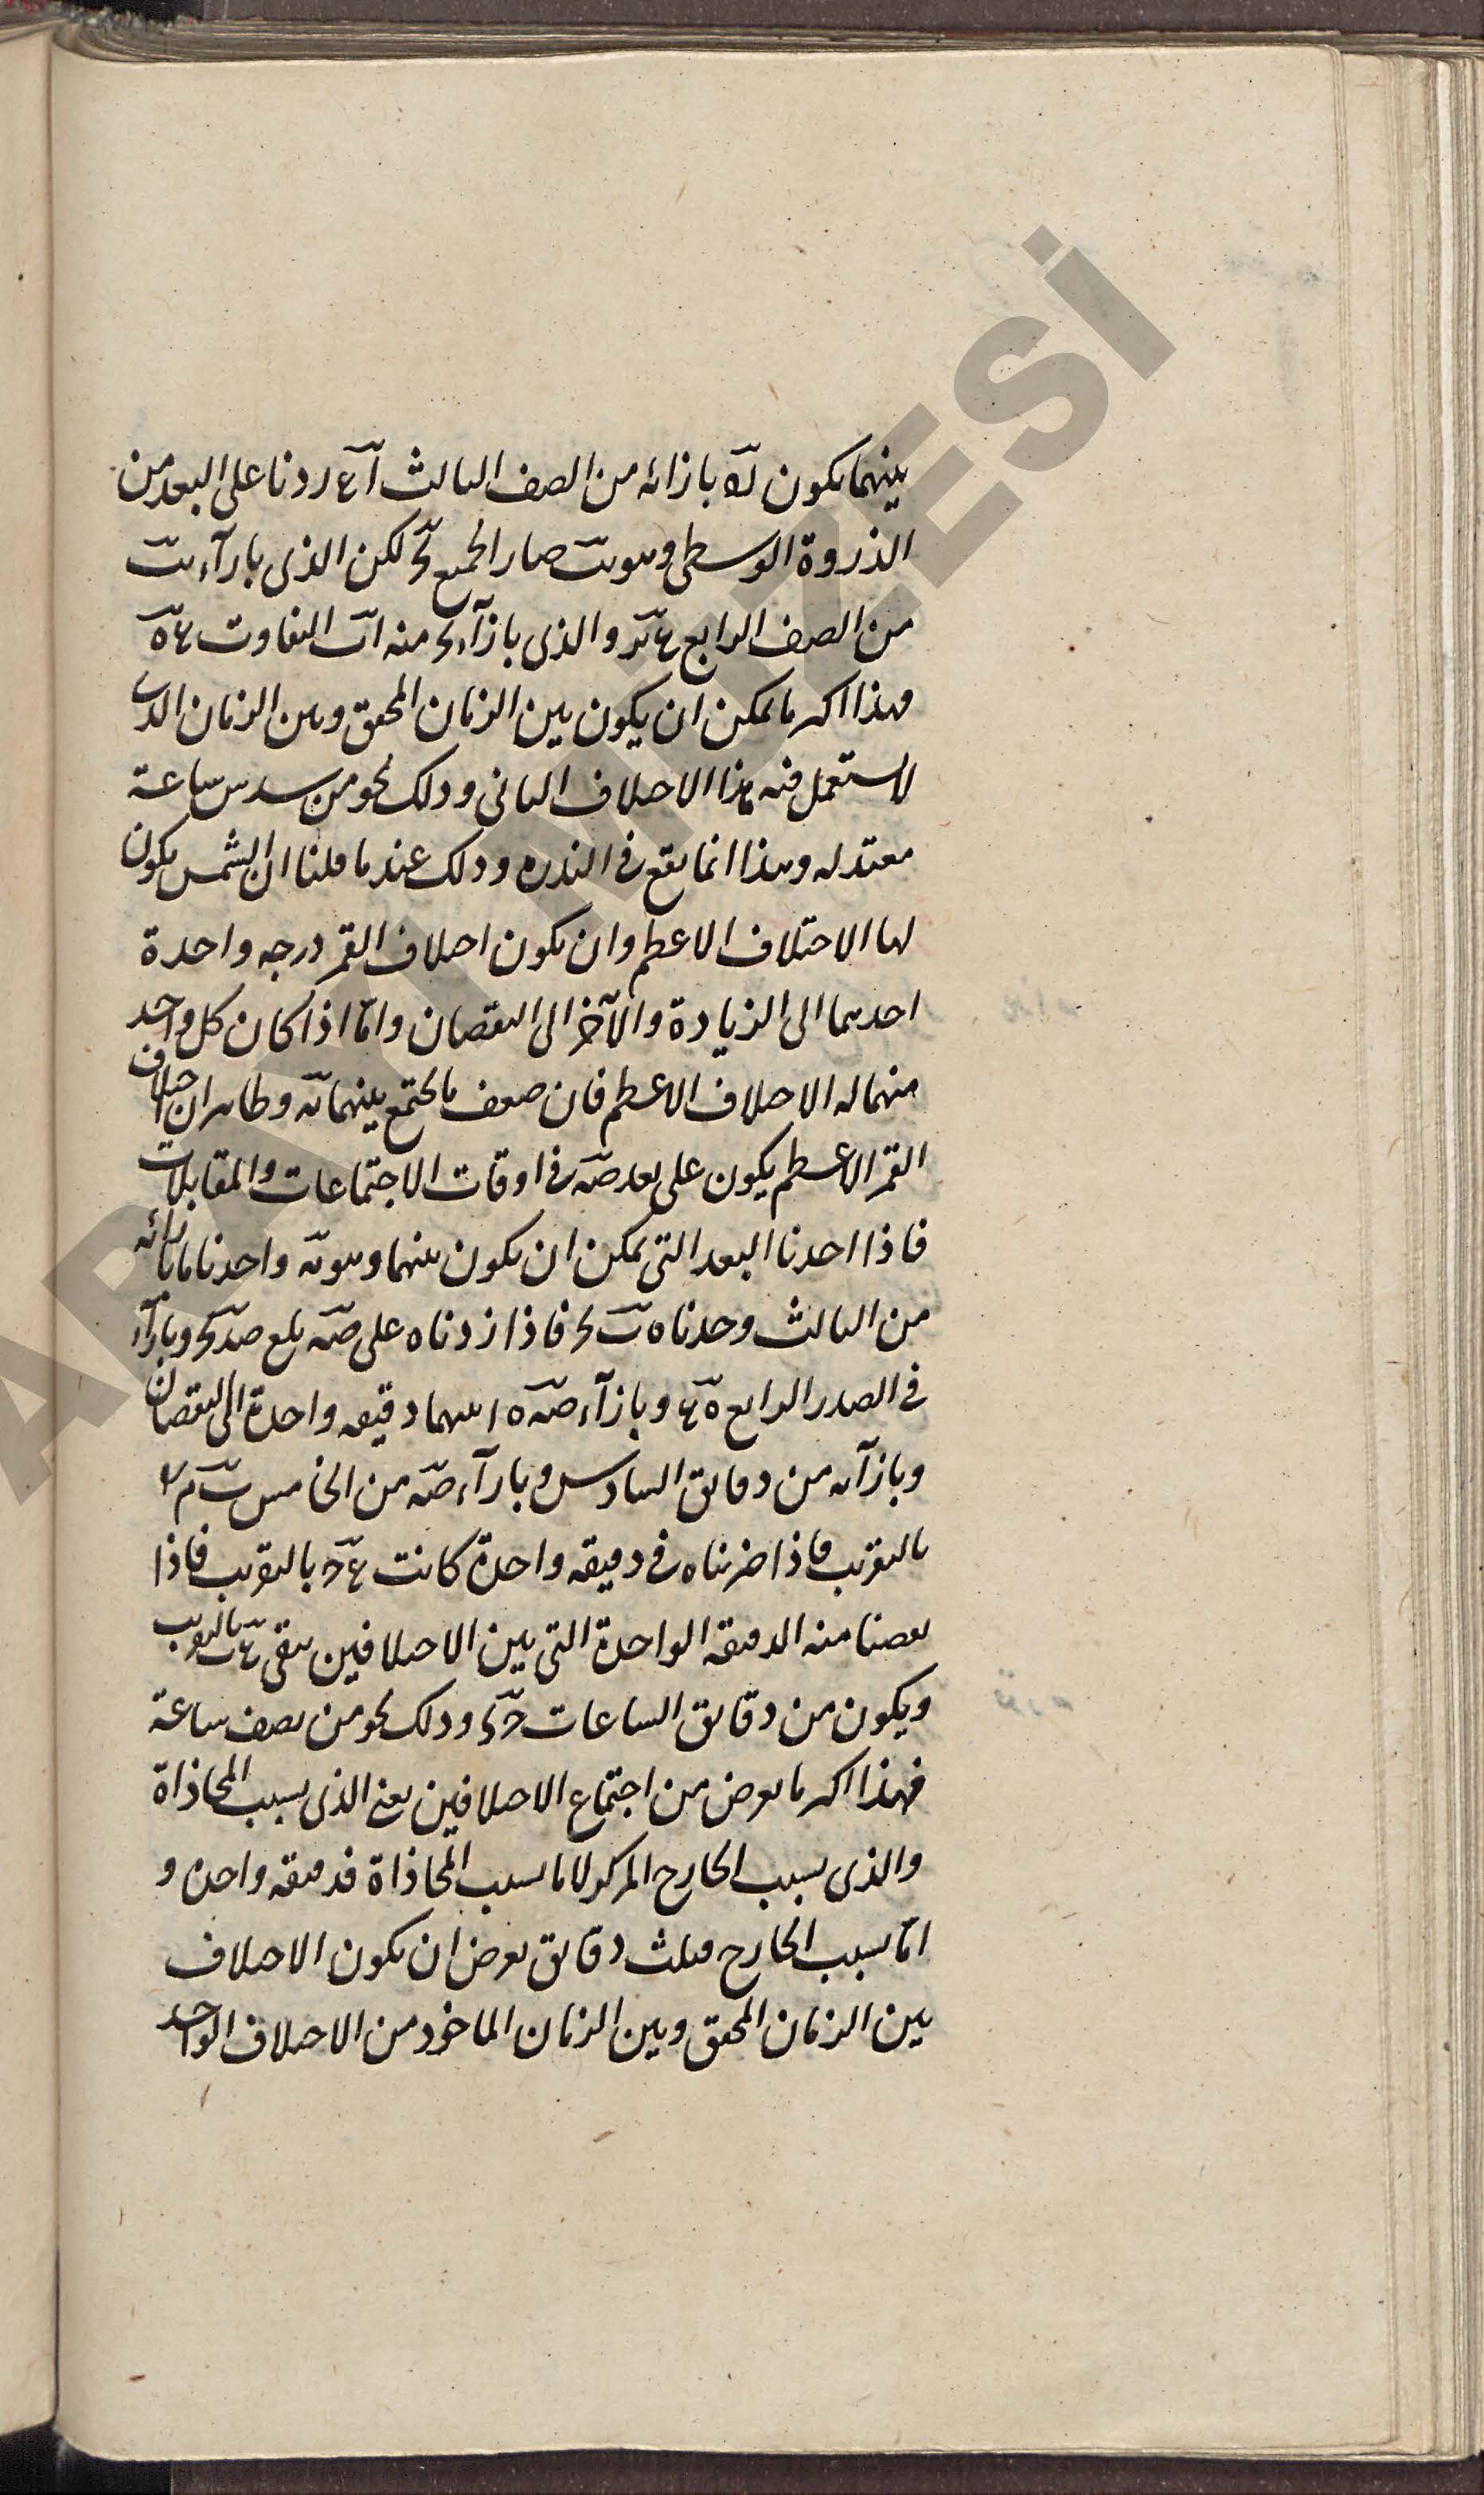 بينهما يكون لَه بازائه من الصف الثالث آ ردنا على البعد من
الذروة الوسطى وهو صار الجميع لكن الذى بازآء
من الصف الرابع والذى بازآء منه التفاوت
وهذا اكثر ما يمكن ان يكون بين الزمان المحقق وبين الزمان الذى
لا يستعمل فيه هذا الاختلاف الثانى وذلك نحو من سدس ساعة
معتدله وهذا انما يقع فى الندره وذلك عند ما قلنا ان الشمس يكون
لها الاختلاف الاعظم وان يكون اختلاف القمر درجه واحدة
احدهما الى الزيادة والآخر الى النقصان وامّا اذا كان كل واحد
منهما له الاختلاف الاعظم فان ضعف ما يجتمع بينهما وظاهر ان اختلاف
القمر الاعظم يكون على بعد صه فى اوقات الاجتماعات والمقابلات
فاذا اخذنا البعد التى يمكن ان يكون بينهما وهو واخذنا ما بازائه
من الثالث وجدناه فاذا زدناه على صه بلغ وبازآء
فى الصدر الرابع وبازآء صه بينهما دقيقه واحدة الى النقصان
وبازآئه من دقايق السادس وبازآء صه من الخامس
بالتقريب فاذا ضربناه فى دقيقه واحدة كانت بالتقريب فاذا
نقصنا منه الدقيقه الواحدة التى بين الاختلافين بقى بالتقريب
ويكون من دقايق الساعات وذلك نحو من نصف ساعة
فهذا اكثر ما يعرض من اجتماع الاختلافين يعنى الذى بسبب المحاذاة
والذى بسبب الخارج المركز لا ما بسبب المحاذاة فدقيقه واحده و
امّا بسبب الخارج فثلث دقايق يعرض ان يكون الاختلاف
بين الزمان المحقق وبين الزمان الماخوذ من الاختلاف الواحد
ARAŞTIRMA MERKEZİ